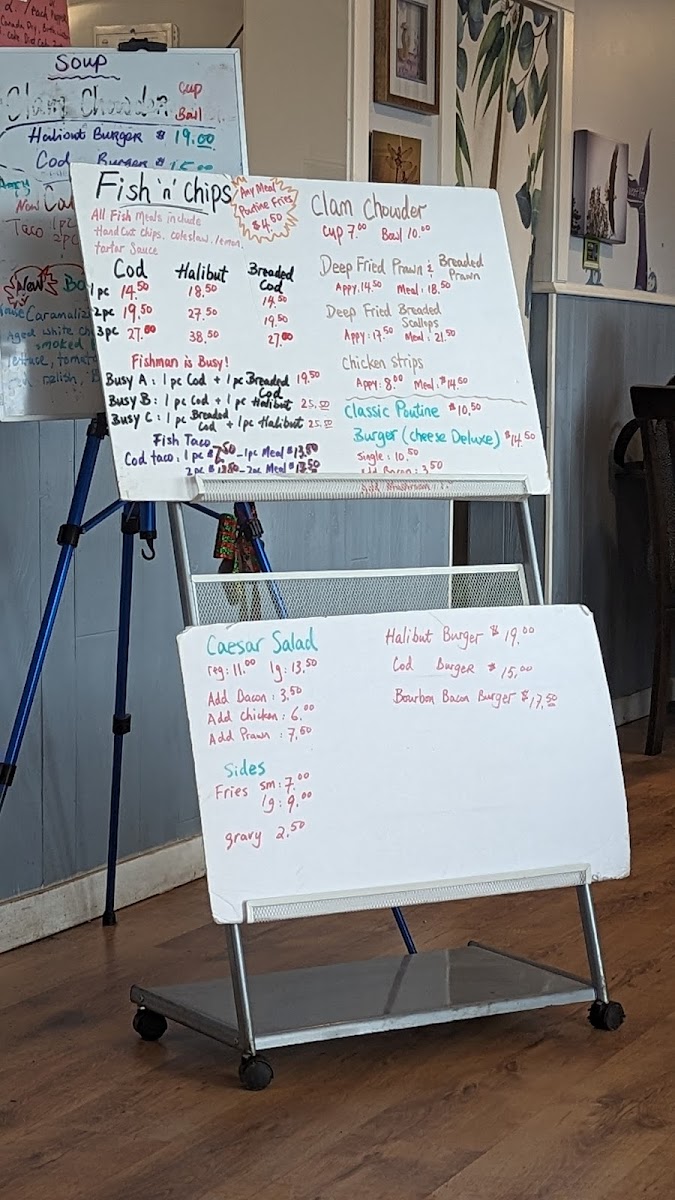 Soup
Clam Chowder Cup
Bowl
Halibut Burger $ 19.00
Cod Burger $ 15.00
Taco 1pc
2pc
New Bo
Caramaliz
Aged white ch
smoked
lettuce, tomato
relish,
Fish 'n' Chips
Any Meal
Poutine Fries
$4.50
All Fish Meals include
Hand Cut chips, coleslaw, lemon,
tartar sauce
Cod Halibut Breaded
Cod
1pc 14.50 18.50 14.50
2pc 19.50 27.50 19.50
3pc 27.00 38.50 27.00
Fishman is Busy!
Busy A : 1 pc Cod + 1 pc Breaded Cod 19.50
Busy B : 1 pc Cod + 1 pc Halibut 25.50
Busy C : 1 pc Breaded Cod + 1 pc Halibut 25.50
Fish Taco
Cod taco : 1 pc $7.50 - 1pc Meal $13.50
2pc - 2pc Meal
Clam Chowder
Cup 7.00 Bowl 10.00
Deep Fried Prawn & Breaded
Prawn
Appy: 14.50 Meal: 18.50
Deep Fried Breaded
Scallops
Appy: 17.50 Meal: 21.50
Chicken strips
Appy: 8.00 Meal: $14.50
Classic Poutine $10.50
Burger (cheese Deluxe) $14.50
Single : 10.50
Add Bacon : 3.50
Add Mushroom :
Caesar Salad
reg: 11.00 lg: 13.50
Add Bacon : 3.50
Add Chicken : 6.00
Add Prawn : 7.50
Sides
Fries sm: 7.00
lg: 9.00
gravy 2.50
Halibut Burger $ 19.00
Cod Burger $ 15.00
Bourbon Bacon Burger $17.50